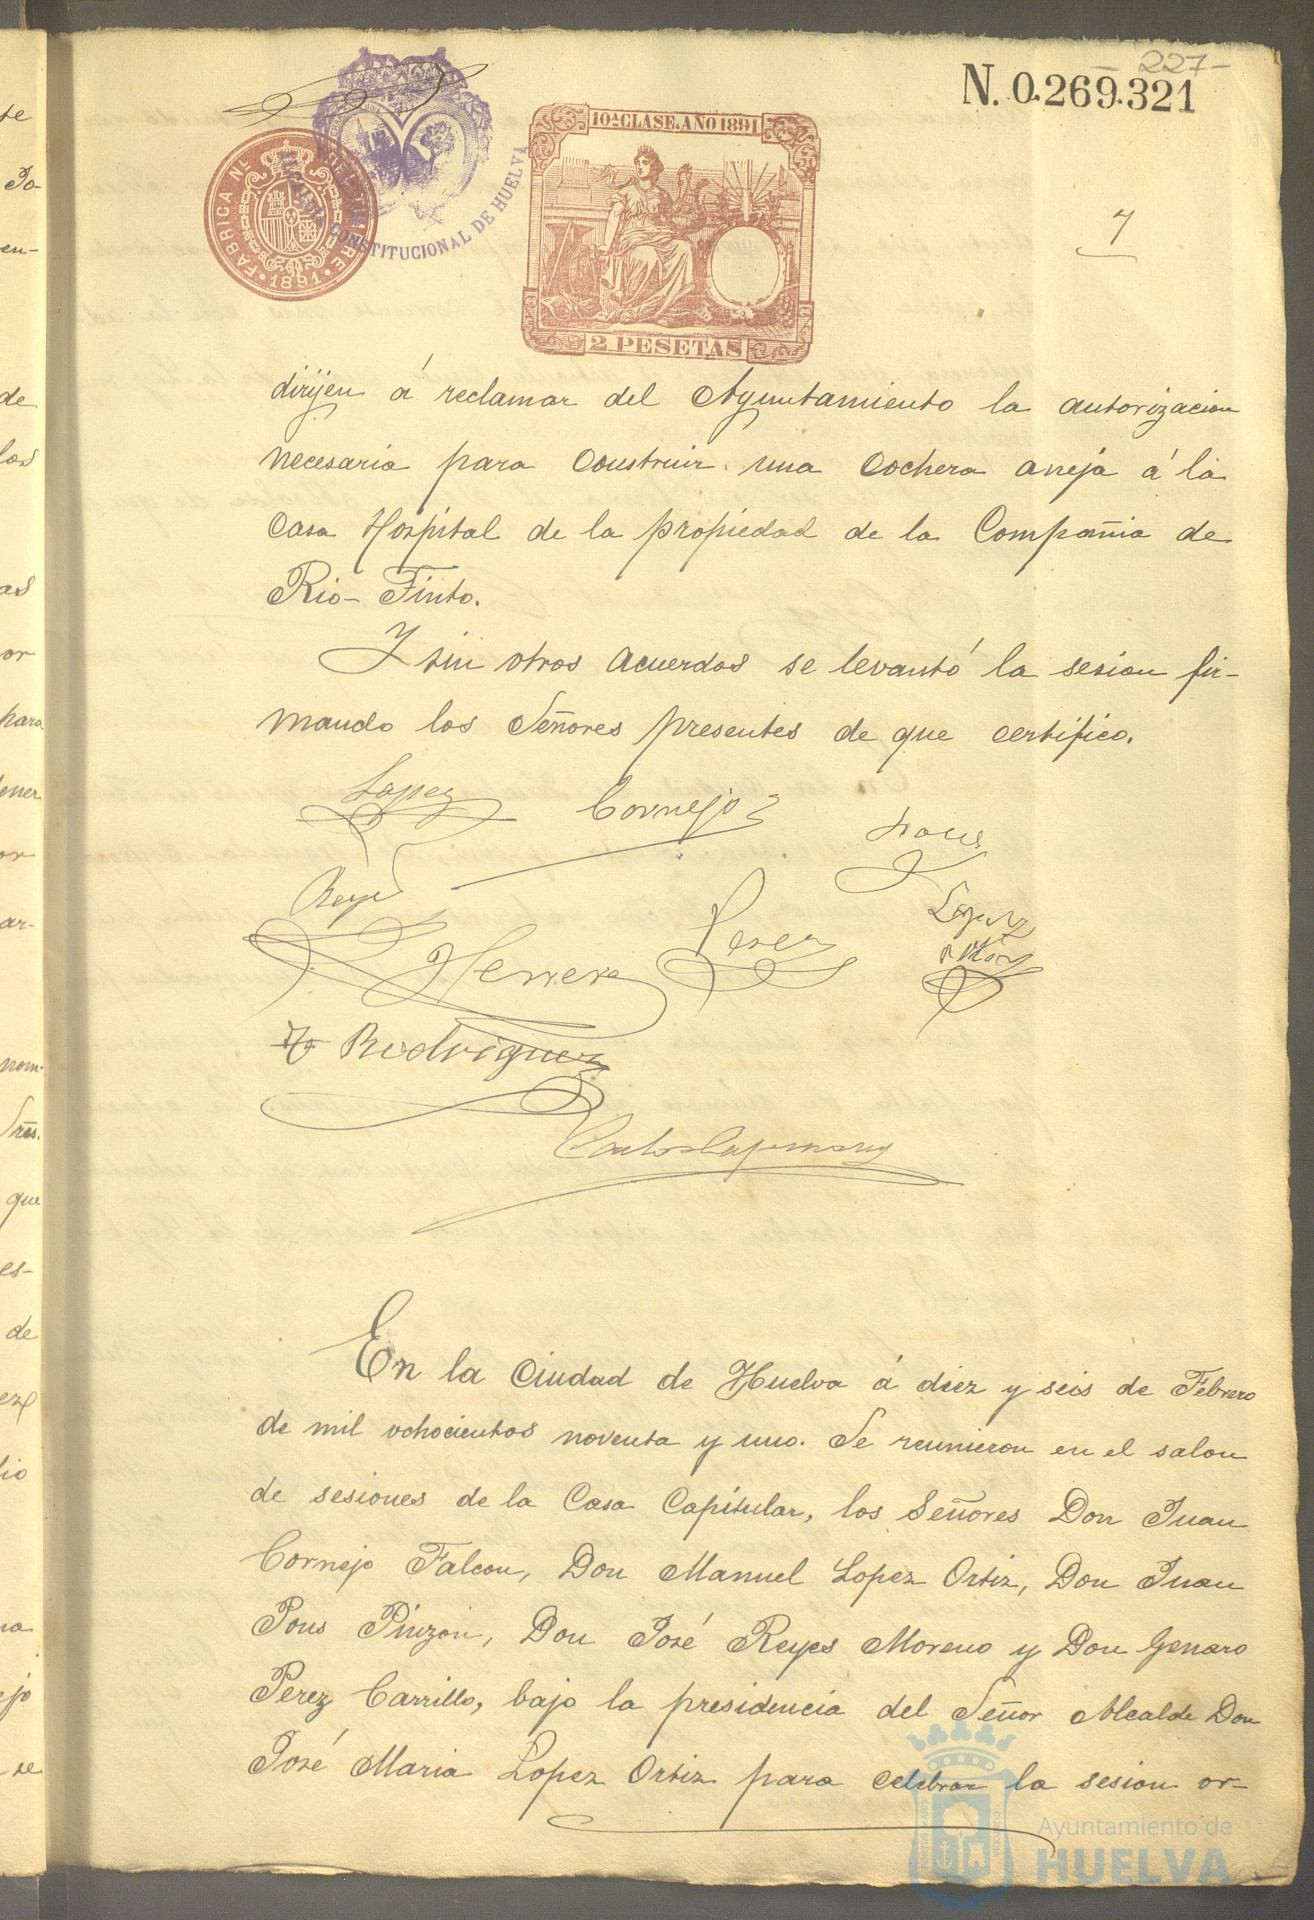 227-
N. 0.269.321
10ª CLASE. AÑO 1891
FABRICA N
RE
1891
CONSTITUCIONAL DE HUELVA
2 PESETAS
7
dirijen á reclamar del Ayuntamiento la autorizacion
necesaria para construir una cochera aneja á la
Casa Hospital de la propiedad de la Compañia de
Rio-Tinto.
Y sin otros acuerdos se levantó la sesion fir-
mando los Señores presentes de que certifico.
Lopez
Cornejo
Reyes
Herrera
Perez
Lopez
Ortiz
Rodriguez
En la Ciudad de Huelva á diez y seis de Febrero
de mil ochocientos noventa y uno. Se reunieron en el salon
de sesiones de la Casa Capitular, los Señores Don Juan
Cornejo Falcon, Don Manuel Lopez Ortiz, Don Juan
Pons Pinzon, Don José Reyes Moreno y Don Genaro
Perez Carrillo, bajo la presidencia del Señor Alcalde Don
José Maria Lopez Ortiz para celebrar la sesion or-
Ayuntamiento de
HUELVA